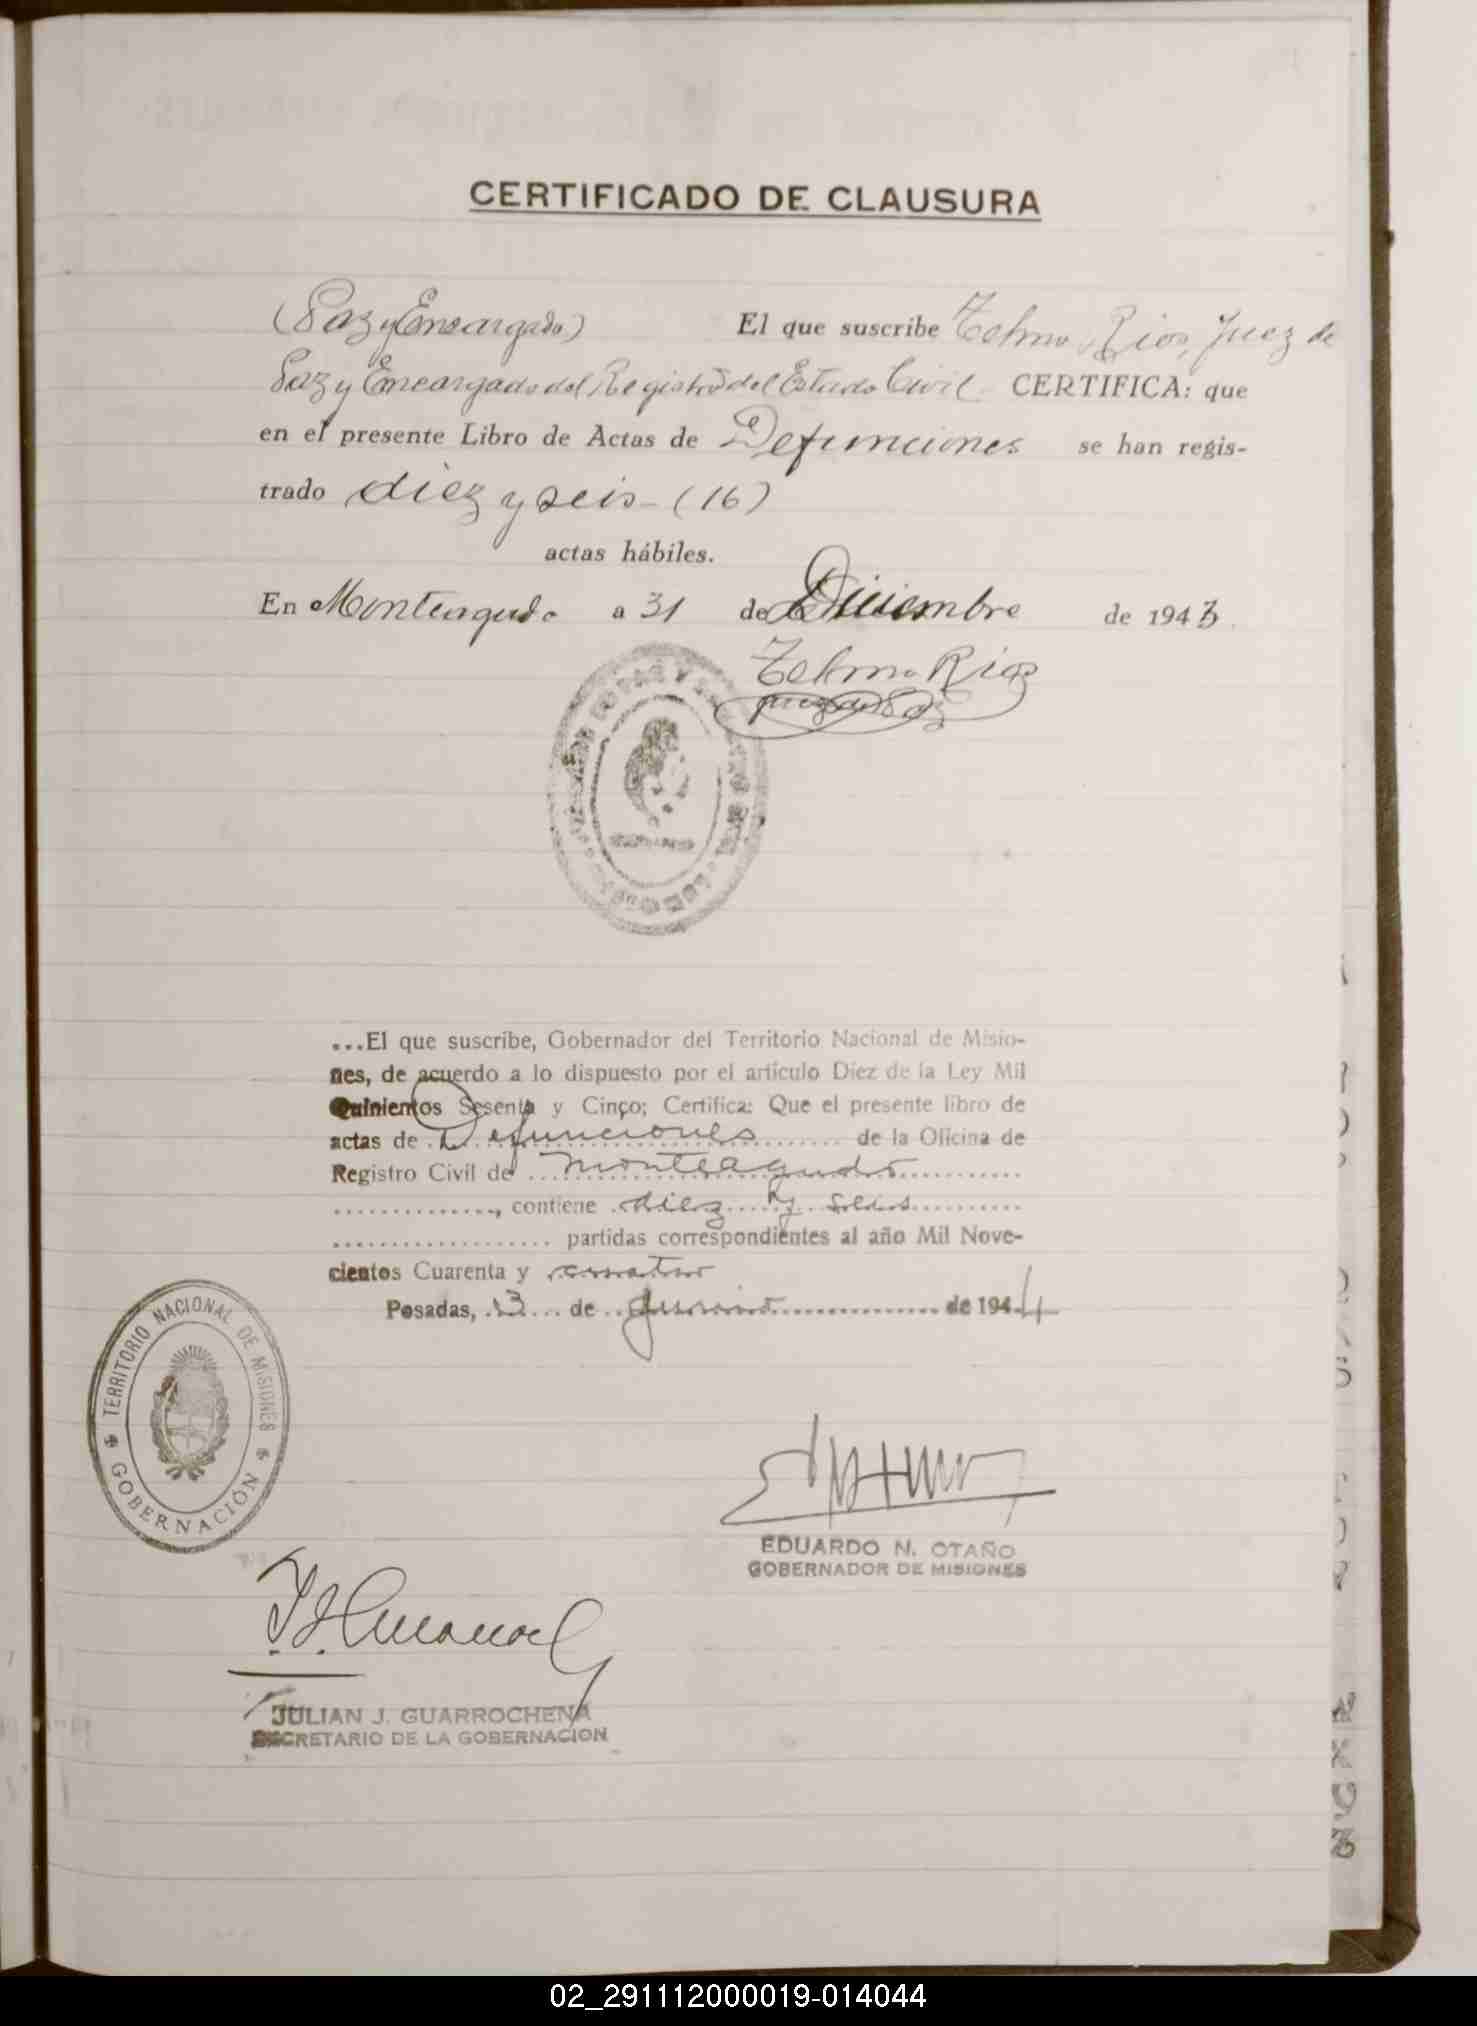 CERTIFICADO DE CLAUSURA
(Paz y Encargado) El que suscribe Telmo Rios, Juez de
Paz y Encargado del Registro del Estado Civil CERTIFICA: que
en el presente Libro de Actas de Defunciones se han regis-
trado diez y seis - (16)
actas hábiles.
En Monteagudo a 31 de Diciembre de 1943
Telmo Rios
juez de Paz
...El que suscribe, Gobernador del Territorio Nacional de Misio-
nes, de acuerdo a lo dispuesto por el artículo Diez de la Ley Mil
Quinientos Sesenta y Cinco; Certifica: Que el presente libro de
actas de Defunciones de la Oficina de
Registro Civil de Monteagudo
, contiene diez y seis
partidas correspondientes al año Mil Nove-
cientos Cuarenta y cuatro
Posadas, 13 de Junio de 1944
TERRITORIO NACIONAL DE MISIONES
GOBERNACIÓN
EDUARDO N. OTAÑO
GOBERNADOR DE MISIONES
JULIAN J. GUARROCHENA
SECRETARIO DE LA GOBERNACION
02_291112000019-014044